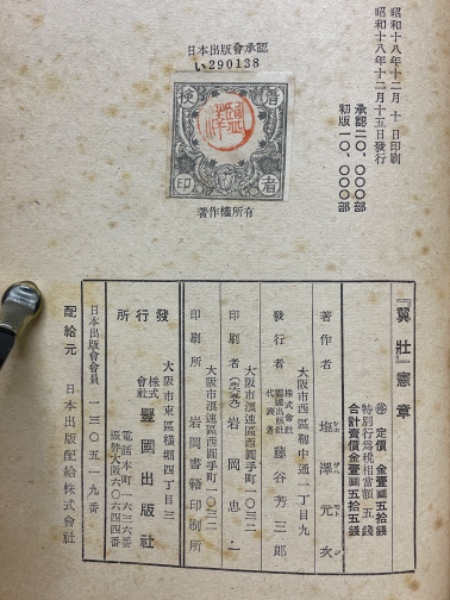 昭和十八年十二月 十 日印刷
昭和十八年十二月十五日發行
承認二〇、〇〇〇部
初版一〇、〇〇〇部
日本出版會承認
い290138
著
者
検
印
著作權所有
『翼壯』憲章
定價 金壹圓五拾錢
特別行爲税相當額 五錢
合計賣價金壹圓五拾五錢
著作者 塩澤元次
シホ ザハ モト ジ
大阪市西區靱中通一丁目九
發行者 株式會社 豐國出版社 代表者 藤谷芳三郎
大阪市浪速區西圓手町一〇三二
印刷者 岩岡忠一
大阪市浪速區西圓手町一〇三二
印刷所 岩岡書籍印刷所
大阪市東區橫堀四丁目三
發行所 株式會社 豐國出版社
電話本町一六三六番
振替大阪六〇六四四番
日本出版會會員 一三〇五一九番
配給元 日本出版配給株式會社